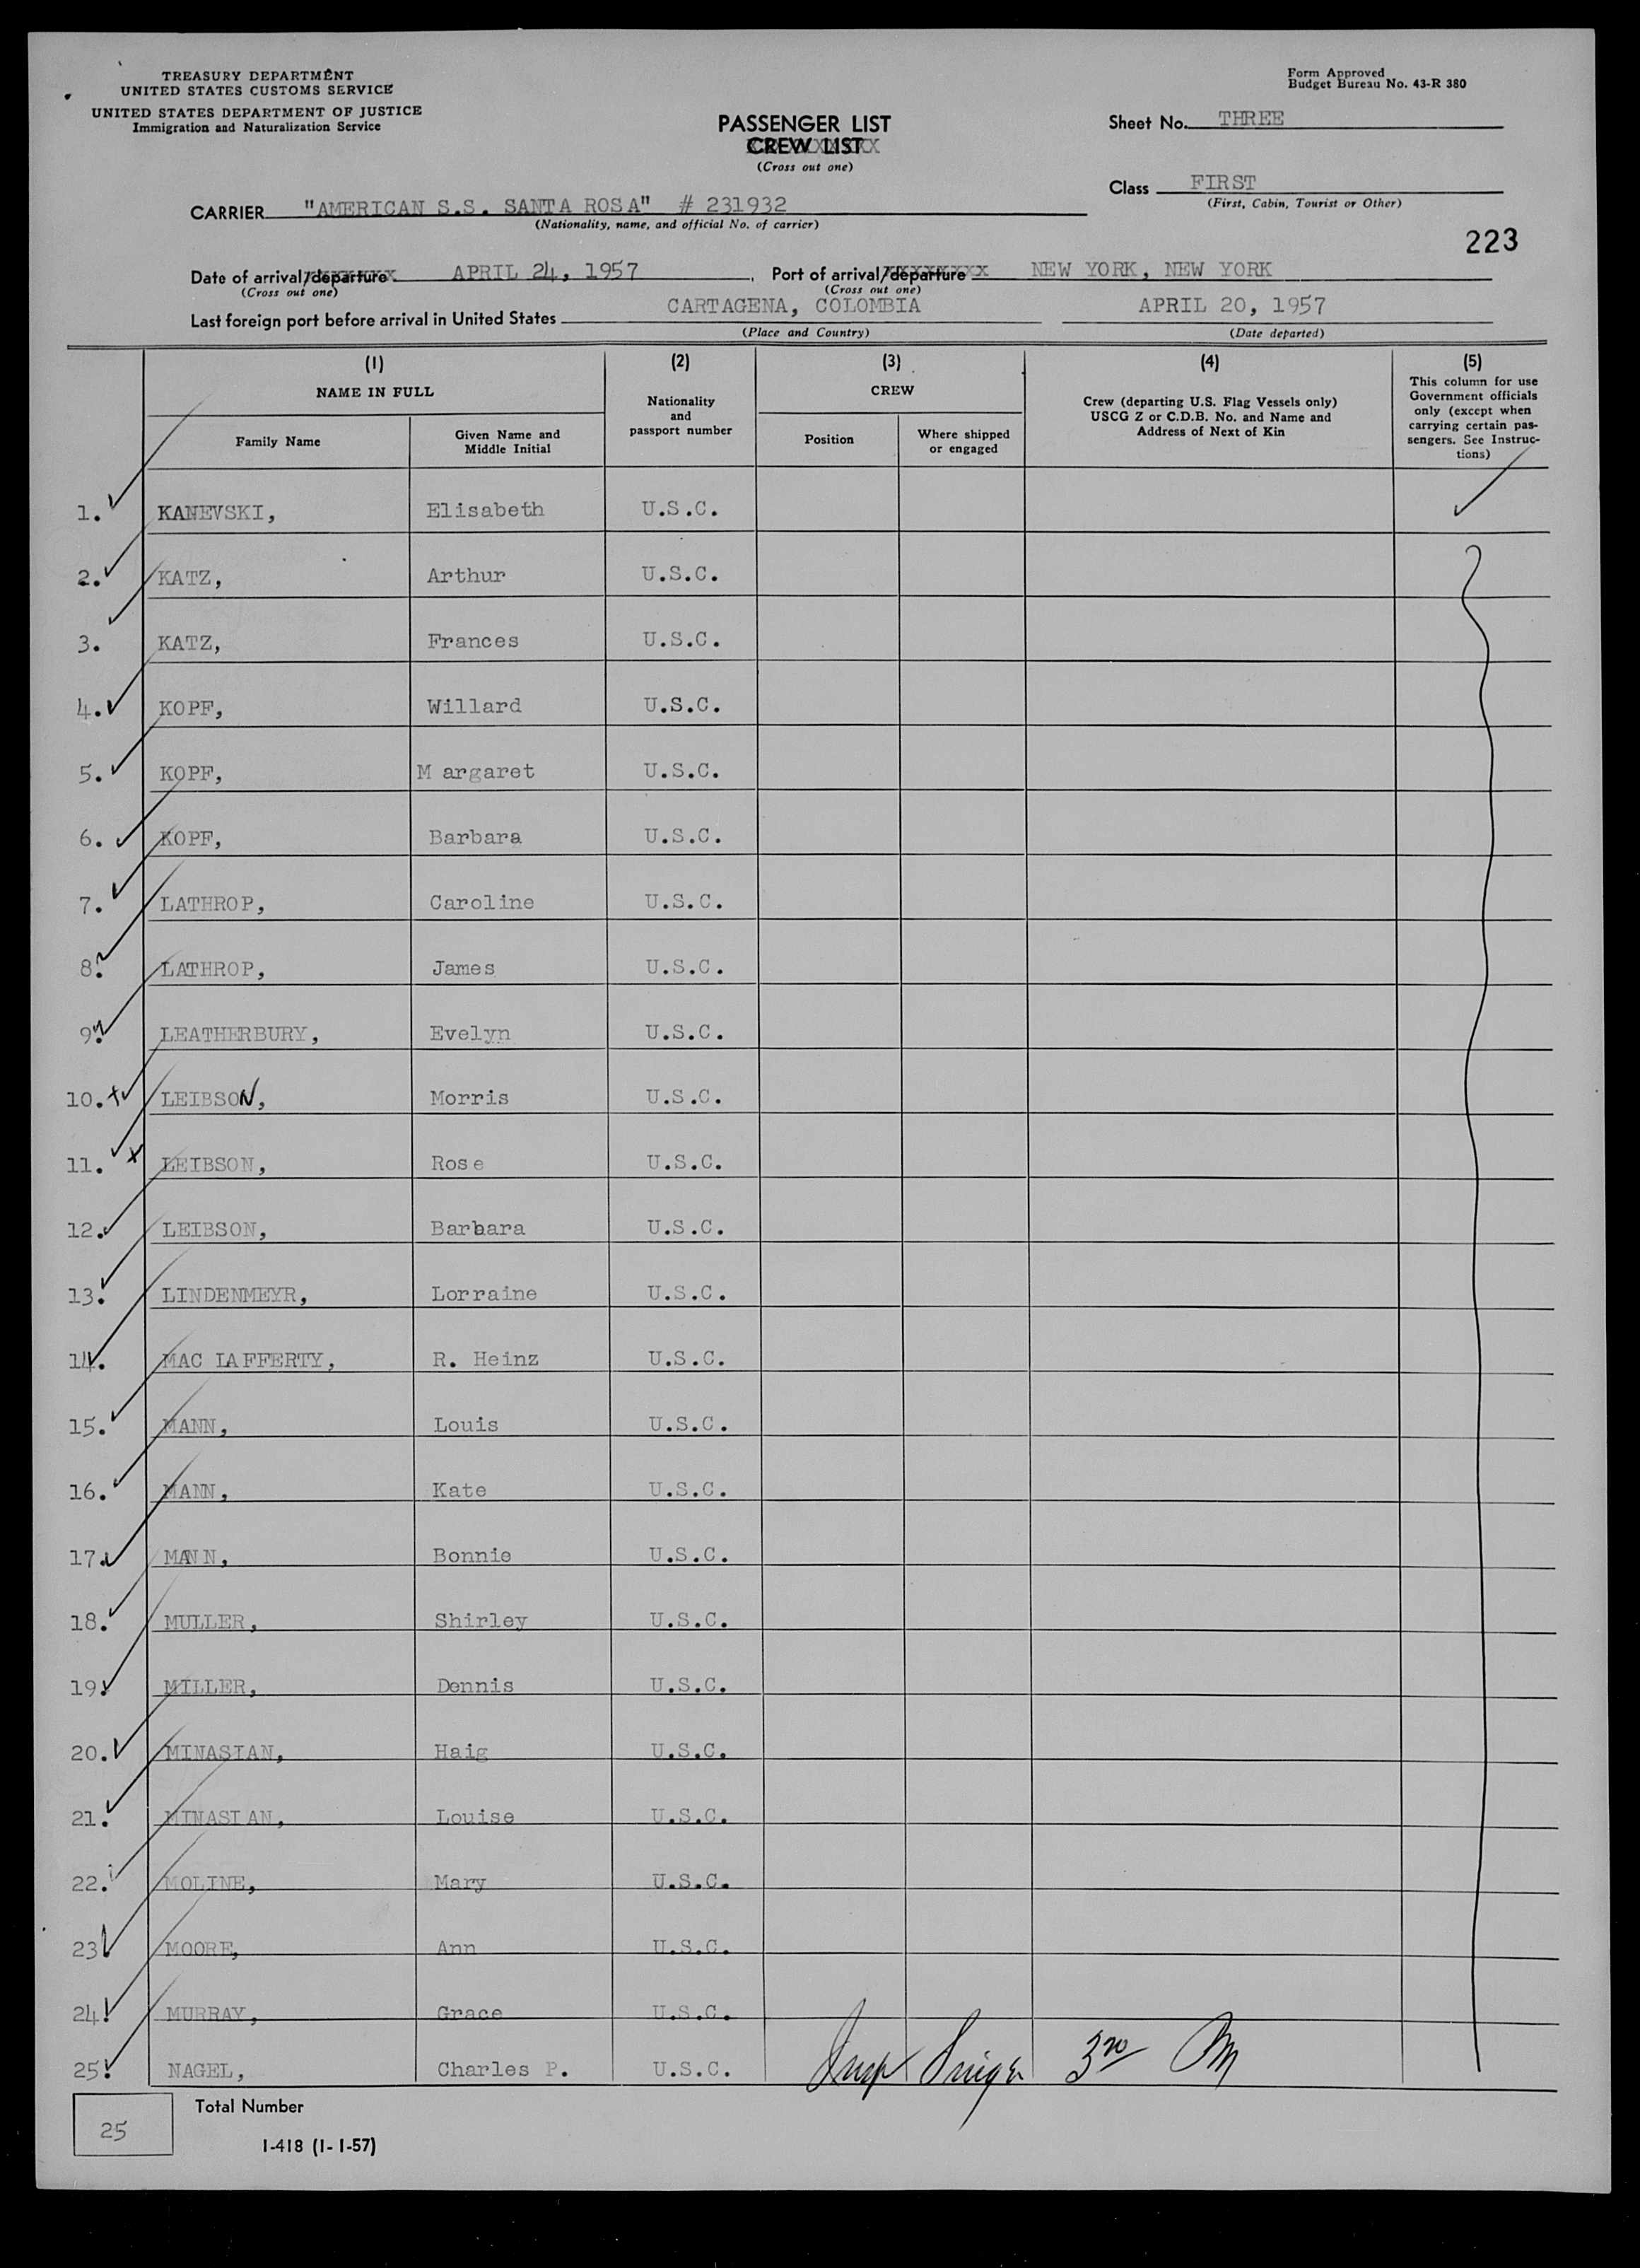 TREASURY DEPARTMENT
UNITED STATES CUSTOMS SERVICE
UNITED STATES DEPARTMENT OF JUSTICE
Immigration and Naturalization Service
Form Approved
Budget Bureau No. 43-R 380
PASSENGER LIST
CREW LIST
(Cross out one)
Sheet No. THREE
Class FIRST
(First, Cabin, Tourist or Other)
CARRIER "AMERICAN S.S. SANTA ROSA" # 231932
(Nationality, name, and official No. of carrier)
223
Date of arrival/departure APRIL 24, 1957, Port of arrival/departure NEW YORK, NEW YORK
(Cross out one) (Cross out one)
Last foreign port before arrival in United States CARTAGENA, COLOMBIA APRIL 20, 1957
(Place and Country) (Date departed)
(1) (2) (3) (4) (5)
NAME IN FULL
Family Name
Given Name and
Middle Initial
Nationality
and
passport number
CREW
Position
Where shipped
or engaged
Crew (departing U.S. Flag Vessels only)
USCG Z or C.D.B. No. and Name and
Address of Next of Kin
This column for use
Government officials
only (except when
carrying certain pas-
sengers. See Instruc-
tions)
1. KANEVSKI, Elisabeth U.S.C.
2. KATZ, Arthur U.S.C.
3. KATZ, Frances U.S.C.
4. KOPF, Willard U.S.C.
5. KOPF, M argaret U.S.C.
6. KOPF, Barbara U.S.C.
7. LATHROP, Caroline U.S.C.
8. LATHROP, James U.S.C.
9. LEATHERBURY, Evelyn U.S.C.
10. LEIBSON, Morris U.S.C.
11. LEIBSON, Rose U.S.C.
12. LEIBSON, Barbara U.S.C.
13. LINDENMEYR, Lorraine U.S.C.
14. MAC LAFFERTY, R. Heinz U.S.C.
15. MANN, Louis U.S.C.
16. MANN, Kate U.S.C.
17. MANN, Bonnie U.S.C.
18. MULLER, Shirley U.S.C.
19. MILLER, Dennis U.S.C.
20. MINASIAN, Haig U.S.C.
21. MINASIAN, Louise U.S.C.
22. MOLINE, Mary U.S.C.
23. MOORE, Ann U.S.C.
24. MURRAY, Grace U.S.C.
25. NAGEL, Charles P. U.S.C.
25
Total Number
I-418 (1-1-57)